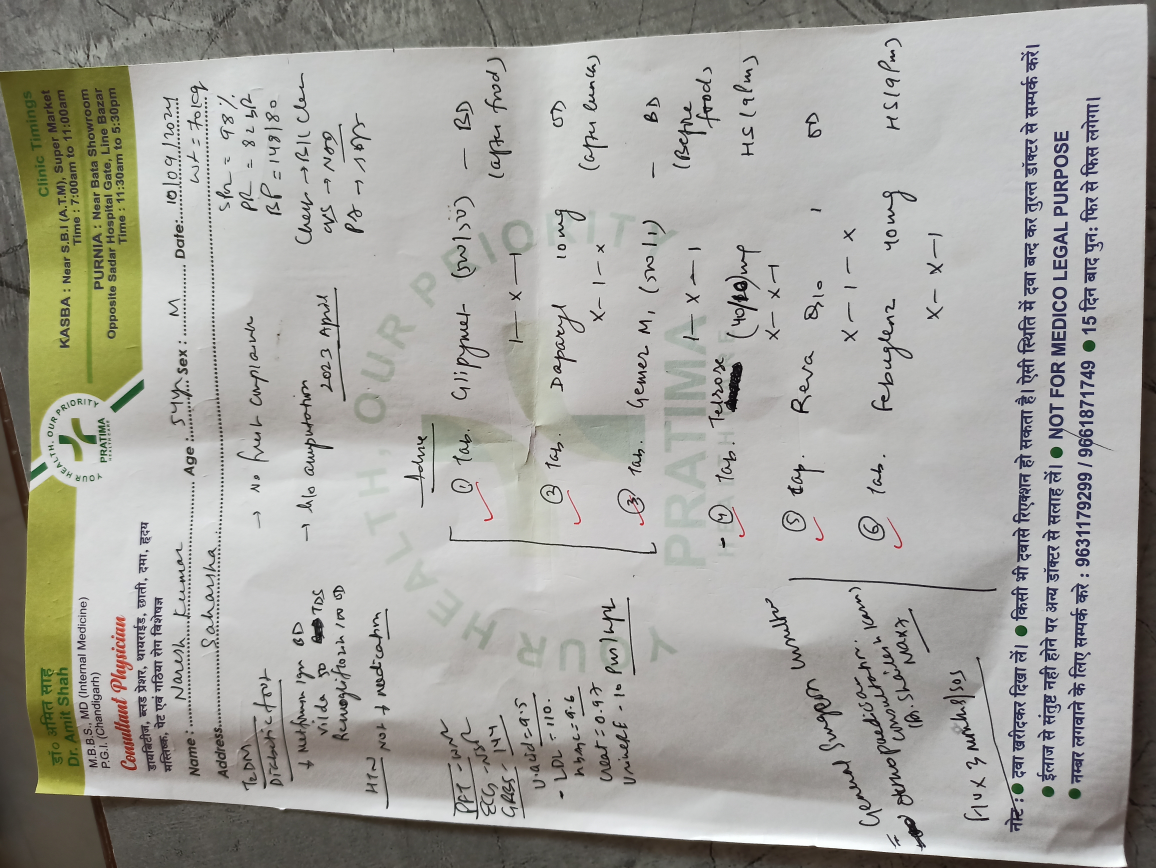 डॉ० अमित साह
Dr. Amit Shah
M.B.B.S., MD (Internal Medicine)
P.G.I. (Chandigarh)
Consultant Physician
डायबिटीज, ब्लड प्रेशर, थायराईड, छाती, दमा, हृदय
मस्तिष्क, पेट एवं गठिया रोग विशेषज्ञ
YOUR HEALTH, OUR PRIORITY
PRATIMA
Clinic Timings
KASBA : Near S.B.I (A.T.M), Super Market
Time : 7:00am to 11:00am
PURNIA : Near Bata Showroom
Opposite Sadar Hospital Gate, Line Bazar
Time : 11:30am to 5:30pm
Name : Naresh Kumar Age : 54yr Sex : M Date: 10/09/2024
Address Saharsha wt = 70kg
T2DM
→ No fresh complaint
SPO2 = 98%
PR = 82
BP = 148/80
→ h/o amputation
2023 April
Chest → B/L Clear
CVS → NAD
P/A → soft
+ Metformin 1gm BD
Vilda 50 TDS
Remogliflozin 100 OD
HTN Not + medication
ECG - NSR
GRBS - 144
U.acid = 9.5
- LDL = 110
HbA1c = 9.6
Creat = 0.97
Urine R/E - 10 pus/HPF
Advice
① Tab. Glipymet (500/5) - BD
1 - x - 1 (after food)
② Tab. Daparyl 10mg OD
x - 1 - x (after lunch)
③ Tab. Gemer M1 (500/1) - BD
1 - x - 1 (Before food)
- ④ Tab. Telrose (40/10)mg HS (9pm)
x - x - 1
⑤ Cap. Reva Q10 1 OD
x - 1 - x
⑥ Tab. Febuglenz 40mg HS (9pm)
x - x - 1
General Surgeon
= orthopaedician consultation
YOUR HEALTH, OUR PRIORITY
PRATIMA
नोट : ● दवा खरीदकर दिखा लें। ● किसी भी दवासे रिएक्शन हो सकता है। ऐसी स्थिति में दवा बन्द कर तुरन्त डॉक्टर से सम्पर्क करें।
● ईलाज से संतुष्ट नही होने पर अन्य डॉक्टर से सलाह लें। ● NOT FOR MEDICO LEGAL PURPOSE
● नम्बर लगवाने के लिए सम्पर्क करे : 9631179299 / 9661871749 ● 15 दिन बाद पुन: फिर से फिस लगेगा।